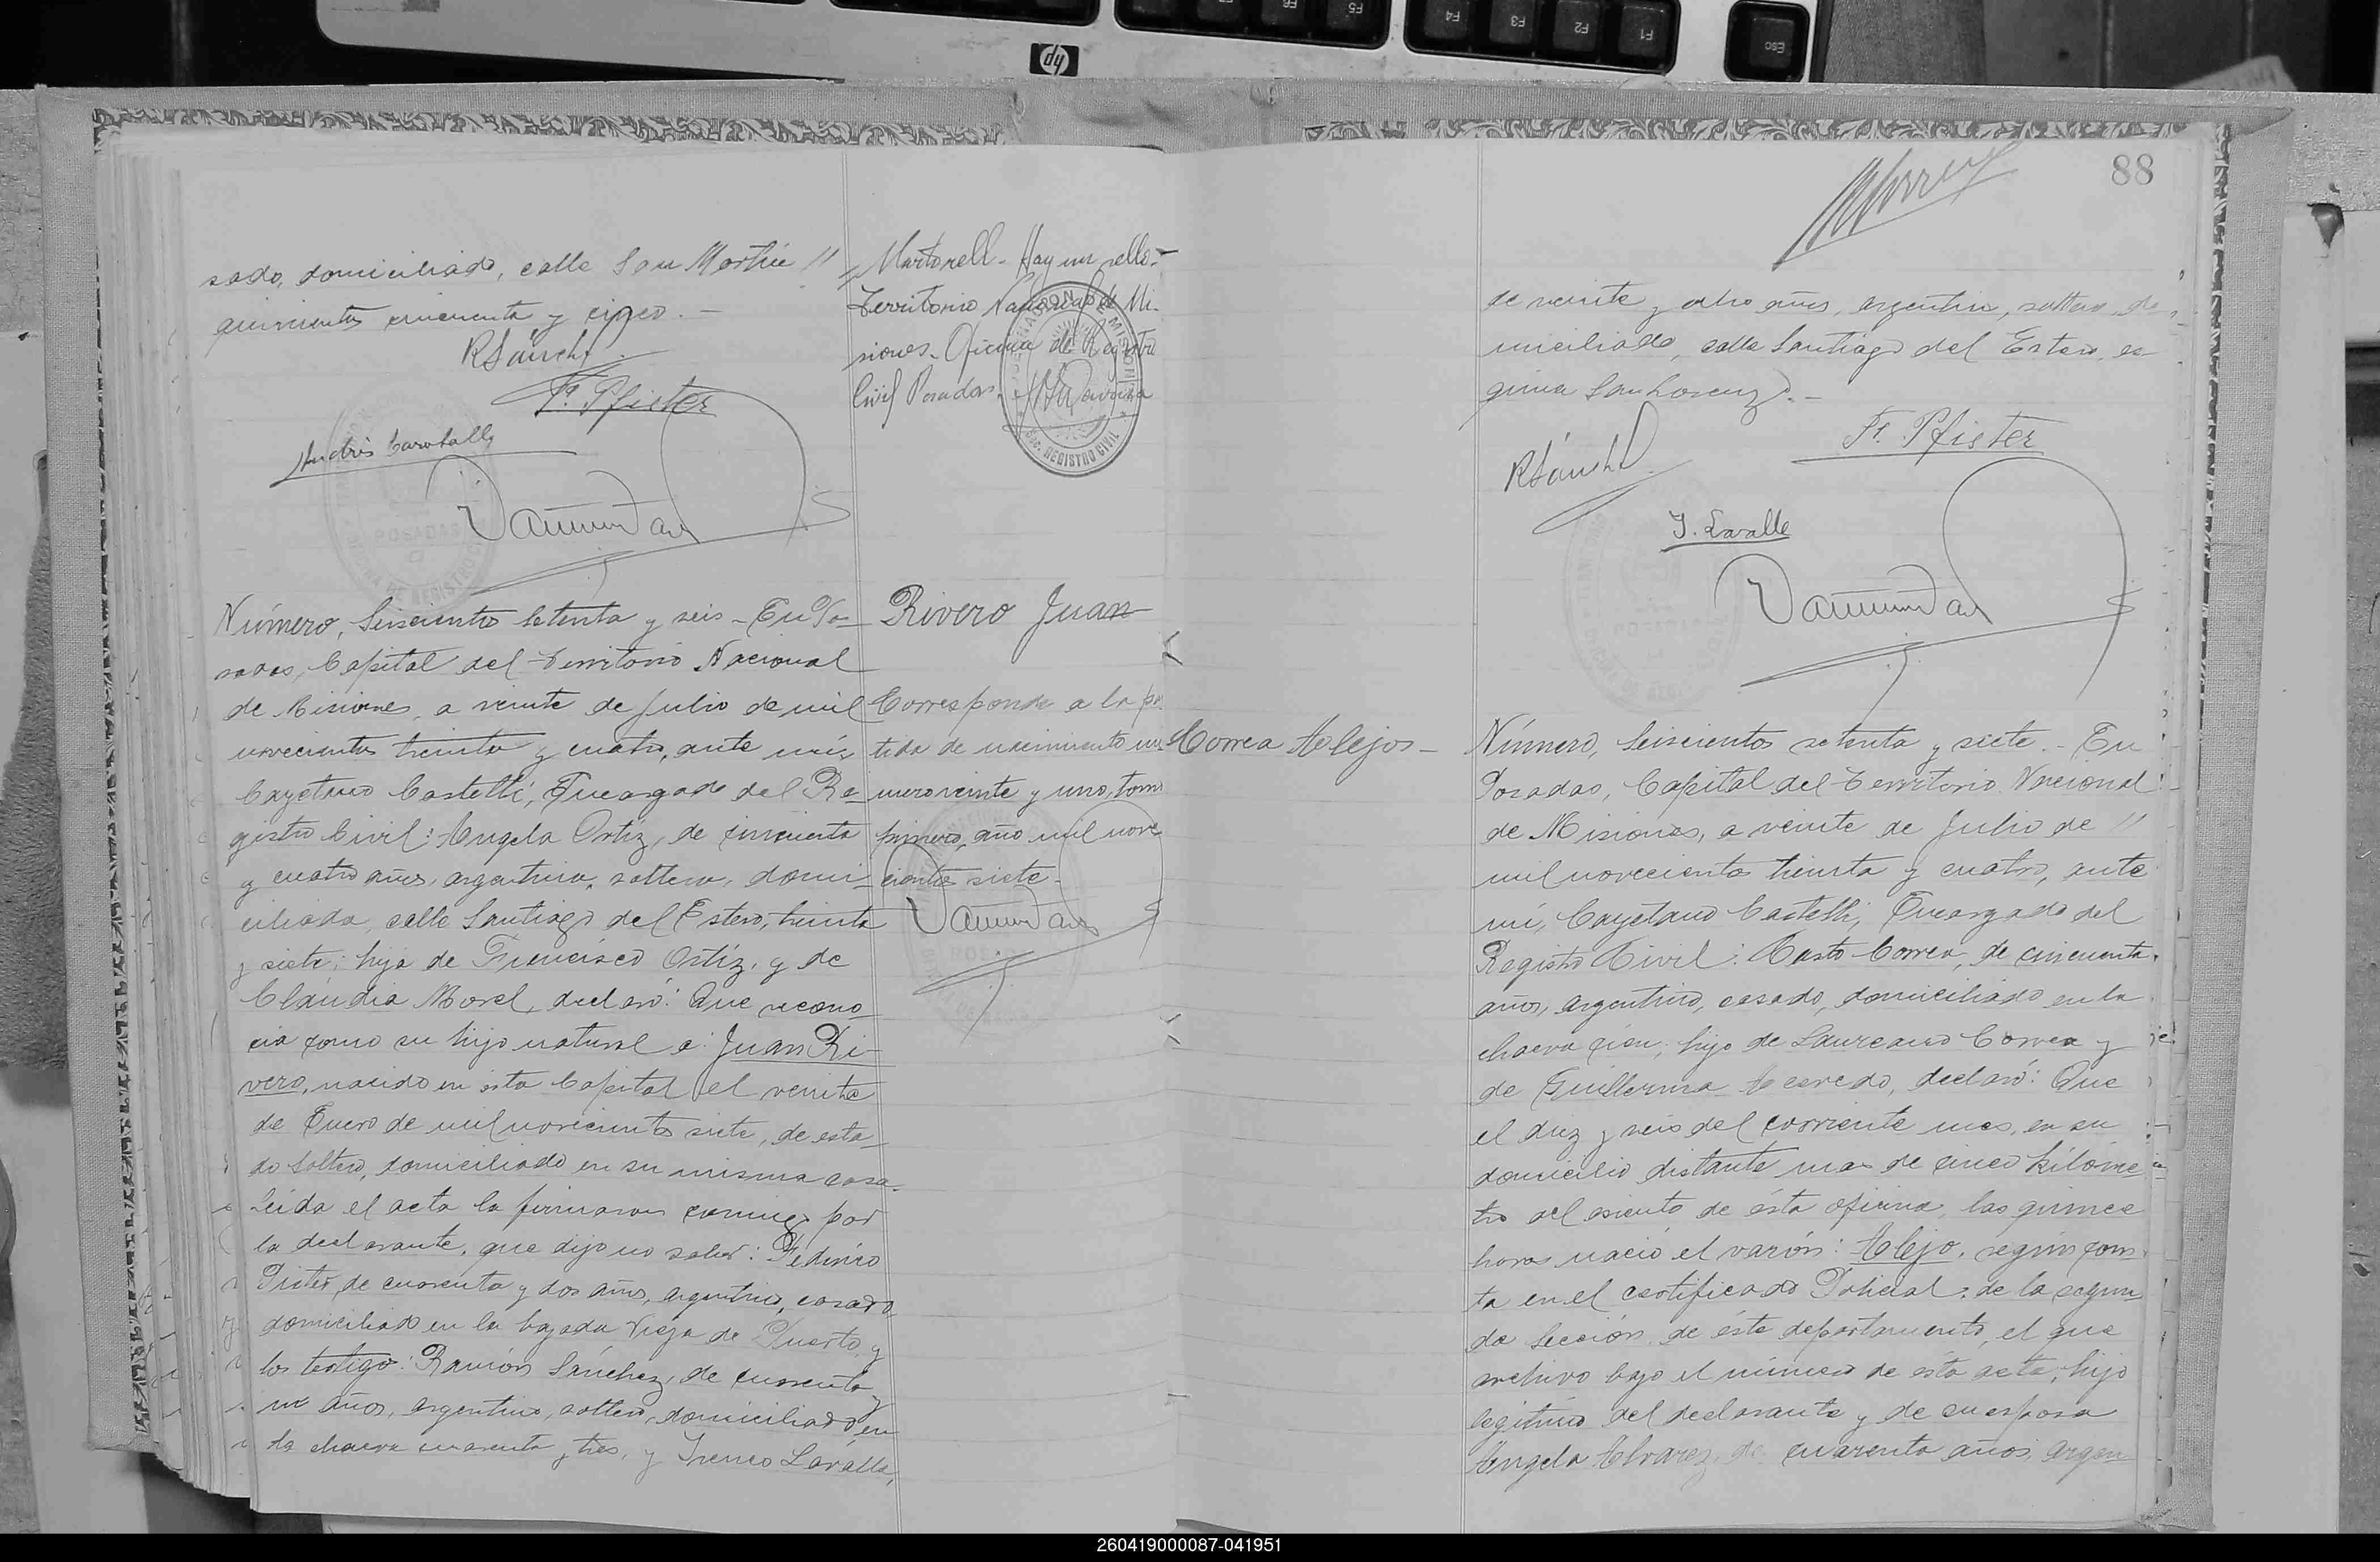 sado, domiciliado, calle San Martín //
quinientos cincuenta y cinco. -
RSánch
F. Pfister
Andrés Carabally
POSADAS
Martorell - Hay un sello -
Territorio Nacional de Mi-
siones. Oficina de Registro
Civil Posadas.
REGISTRO CIVIL
Número, Seiscientos setenta y seis - En Po-
sadas, Capital del Territorio Nacional
de Misiones, a veinte de Julio de mil
novecientos treinta y cuatro, ante mí,
Cayetano Castelli, Encargado del Re-
gistro Civil: Angela Ortíz, de cincuenta
y cuatro años, argentina, soltera, domi-
ciliada, calle Santiago del Estero, treinta
y siete; hija de Francisco Ortíz, y de
Claudia Morel, declaró: Que recono-
cía como su hijo natural a: Juan Ri-
vero, nacido en ésta Capital el veinte
de Enero de mil novecientos siete, de esta-
do soltero, domiciliado en su misma casa.
Leída el acta la firmaron conmigo por
la declarante, que dijo no saber: Federico
Fister, de cuarenta y dos años, argentino, casado,
domiciliado en la bajada vieja de Puerto, y
los testigo: Ramón Sánchez, de cuarenta y
un años, argentino, soltero, domiciliado en
la chacra cuarenta y tres, y Ireneo Lavalle,
Rivero Juan
Corresponde a la par
tida de nacimiento nu
mero veinte y uno, tomo
primero, año mil nove
cientos siete -
88
de veinte y ocho años, argentino, soltero, do-
miciliado, calle Santiago del Estero, es-
quina San Lorenzo. -
RSánch
F. Pfister
I. Lavalle
Correa Alejos -
Número, Seiscientos setenta y siete. - En
Posadas, Capital del Territorio Nacional
de Misiones, a veinte de Julio de //
mil novecientos treinta y cuatro, ante
mí, Cayetano Castelli, Encargado del
Registro Civil: Casto Correa, de cincuenta
años, argentino, casado, domiciliado en la
chacra cien; hijo de Laureano Correa y
de Guillerma Acevedo, declaró: Que
el diez y seis del corriente mes, en su
domicilio distante mas de cinco kilóme
tro del asiento de ésta oficina, las quince
horas nació el varón: Alejo, según cons
ta en el certificado Policial, de la segun
da Sección de éste departamento, el que
archivo bajo el número de ésta acta; hijo
legítimo del declarante y de su esposa
Angela Alvarez, de cuarenta años, argen-
hp
F5
F4
F3
F2
F1
Esc
260419000087-041951